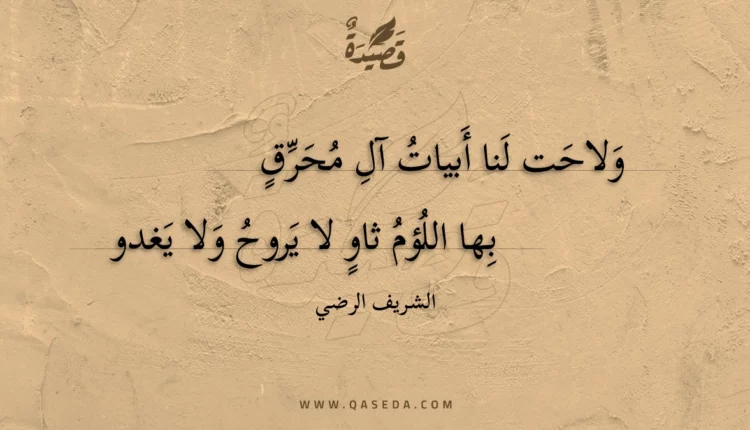 قَصِيدَةٌ
وَلاحَت لَنا أَبياتُ آلِ مُحَرِّقٍ
بِها اللُؤمُ ثاوٍ لا يَروحُ وَلا يَغدو
الشريف الرضي
WWW.QASEDA.COM